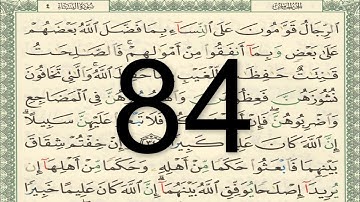 سُورَةُ النِّسَاءِ ٤
ٱلرِّجَالُ قَوَّٰمُونَ عَلَى ٱلنِّسَآءِ بِمَا فَضَّلَ ٱللَّهُ بَعْضَهُمْ
عَلَىٰ بَعْضٍ وَبِمَآ أَنفَقُوا۟ مِنْ أَمْوَٰلِهِمْ ۚ فَٱلصَّٰلِحَٰتُ
قَٰنِتَٰتٌ حَٰفِظَٰتٌ لِّلْغَيْبِ ٱللَّهُ ۚ وَٱلَّٰتِى تَخَافُونَ
نُشُوزَهُنَّ فَعِظُوهُنَّ وَٱهْجُرُوهُنَّ فِى ٱلْمَضَاجِعِ
وَٱضْرِبُوهُنَّ ۖ فَإِنْ فَلَا عَلَيْهِنَّ سَبِيلًا ۗ
إِنَّ ٱللَّهَ كَانَ عَلِيًّا كَبِيرًا إِنْ خِفْتُمْ شِقَاقَ
بَيْنِهِمَا فَٱبْعَثُوا۟ حَكَمًا مِّنْ أَهْلِهِۦ وَحَكَمًا مِّنْ أَهْلِهَآ إِن
يُرِيدَآ إِصْلَٰحًا يُوَفِّقِ ٱللَّهُ بَيْنَهُمَآ ۗ إِنَّ ٱللَّهَ كَانَ عَلِيمًا خَبِيرًا
84